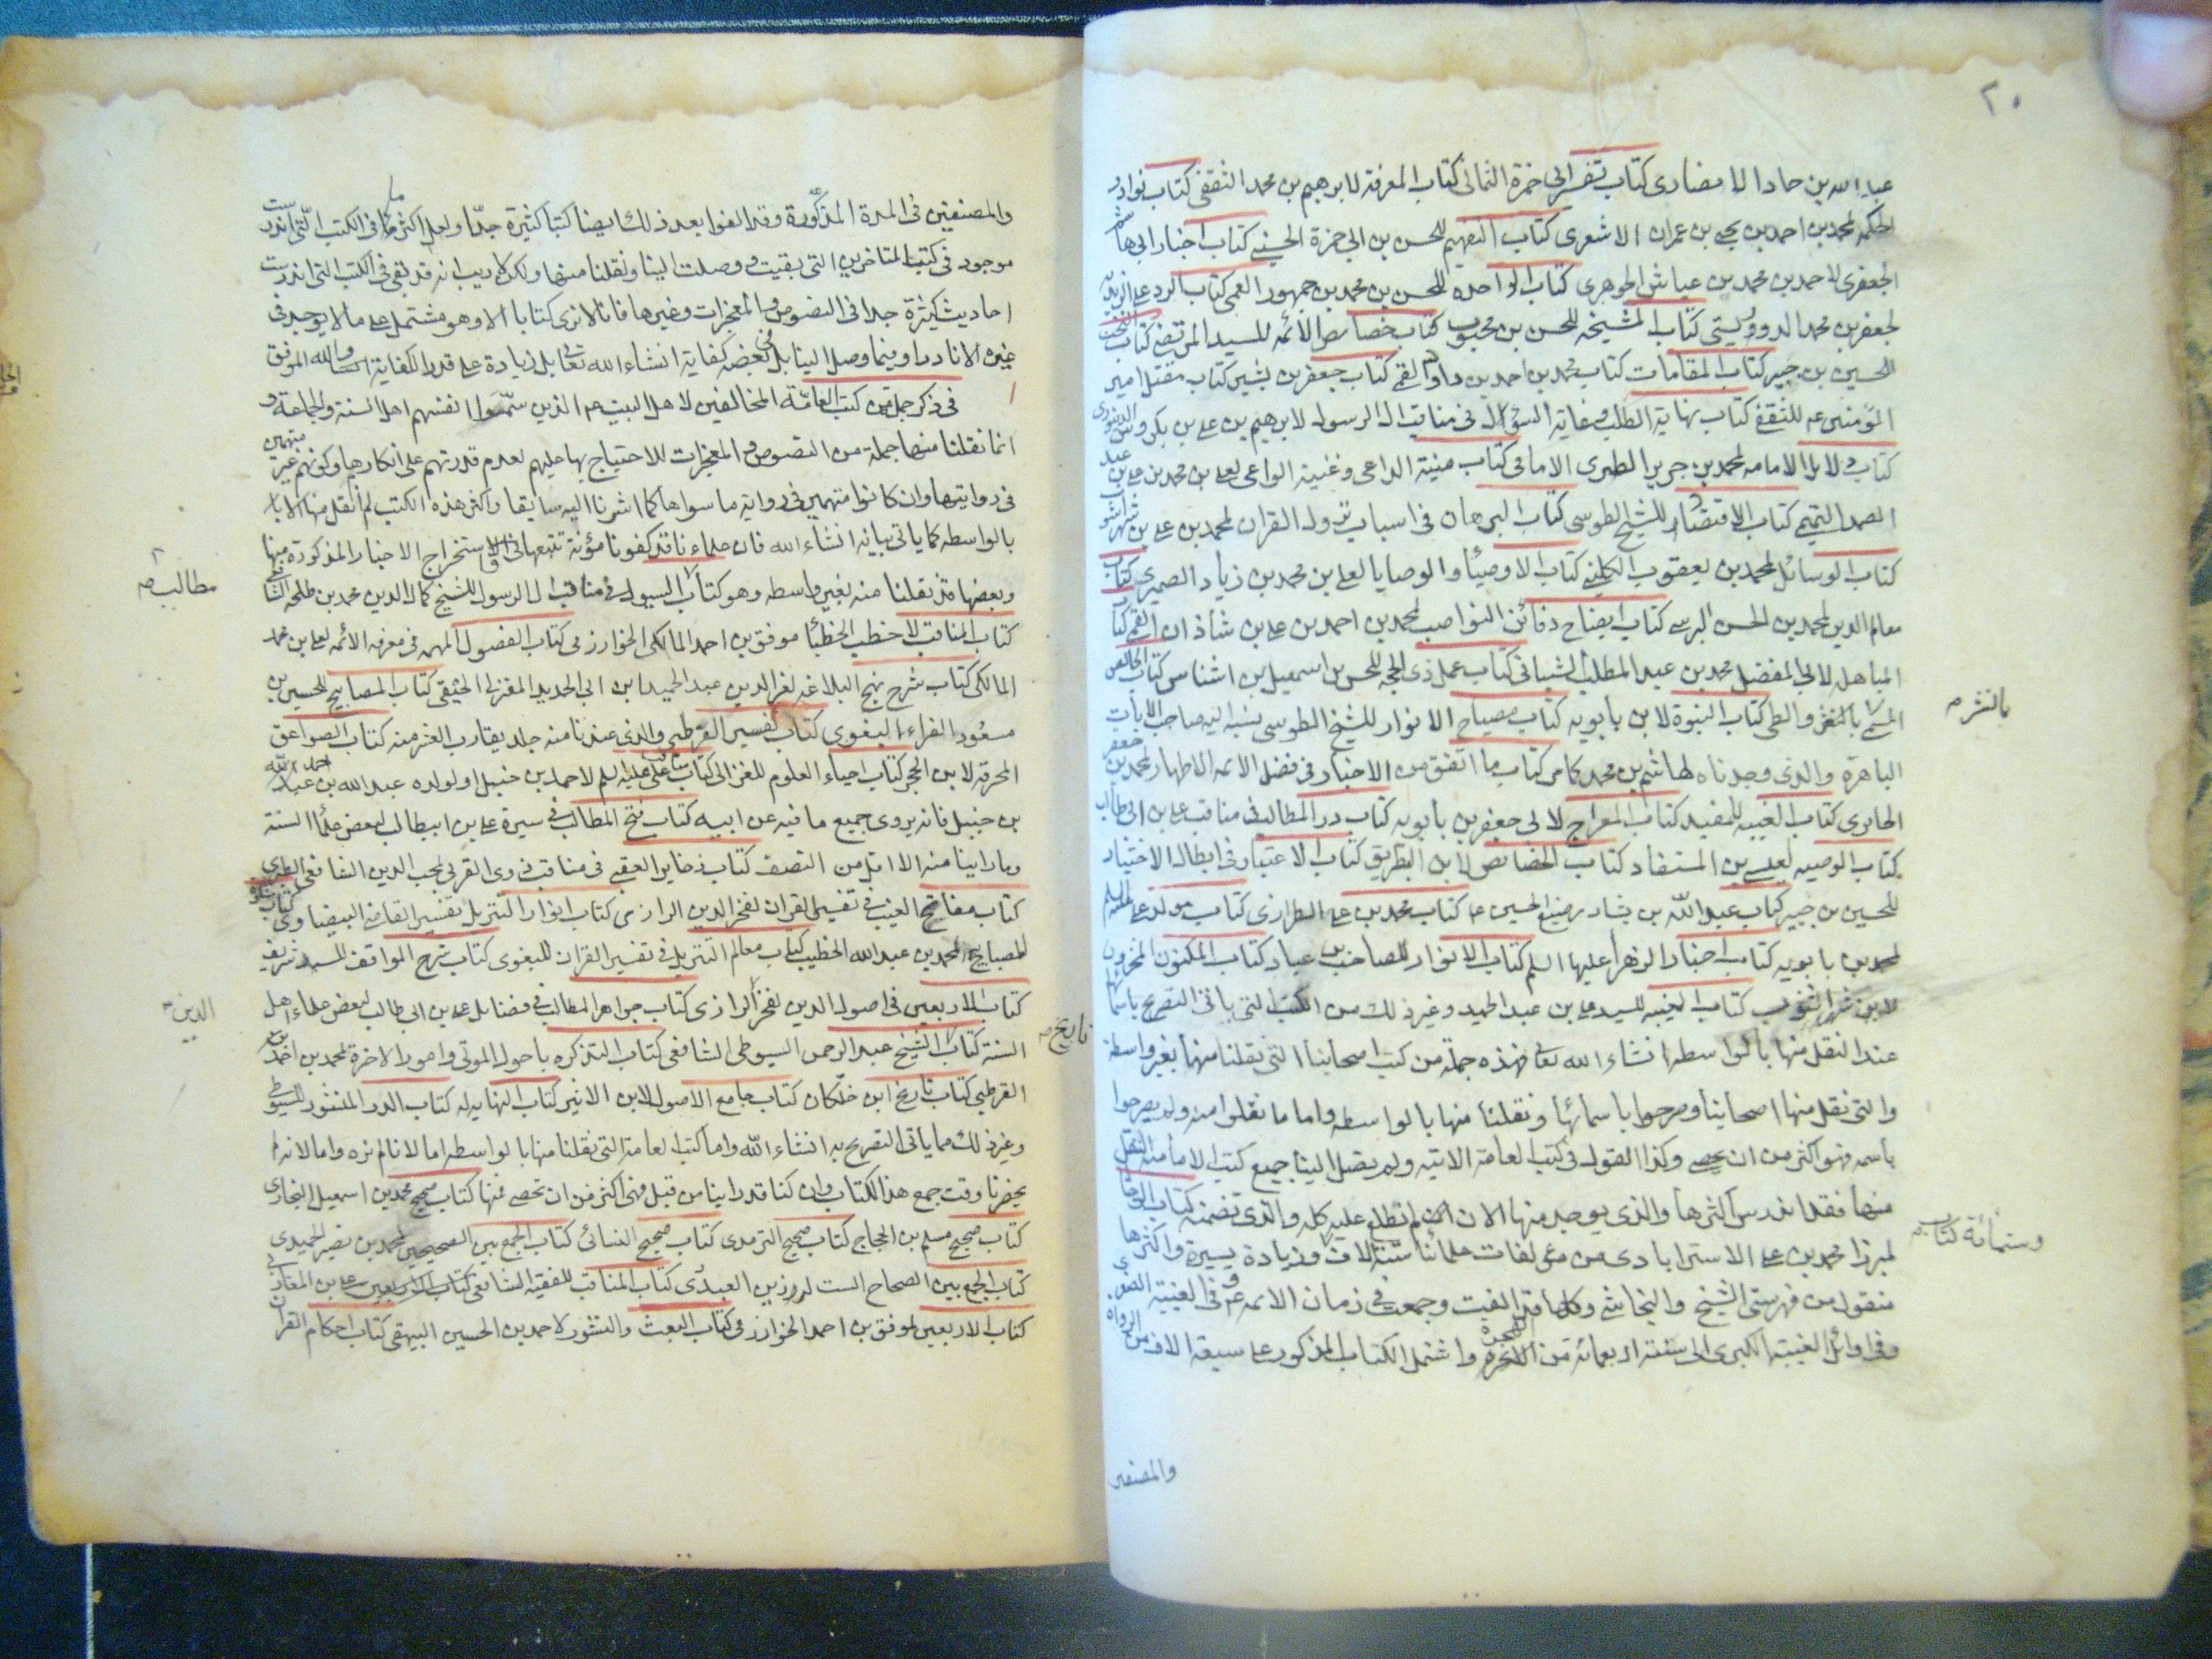 ٢٠
عبد الله بن حماد الانصارى كتاب تفسير ابى حمزة الثمالى كتاب المعرفة لابرهيم بن محمد الثقفى كتاب نوادر
الحكمه لمحمد بن احمد بن يحيى بن عمران الاشعرى كتاب التفهيم للحسن بن ابى حمزة الحسينى كتاب اخبار ابى هاشم
الجعفرى لاحمد بن محمد بن عياش الجوهرى كتاب الواحدة للحسن بن محمد بن جمهور العمى كتاب الرد على الزيديه
لجعفر بن محمد الدوريستى كتاب المشيخه للحسن بن محبوب كتاب خصايص الائمه للسيد المرتضى كتاب
للحسين بن جبير كتاب المقامات كتاب محمد بن احمد بن داود القمى كتاب جعفر بن بشير كتاب مقتل امير
المؤمنين ع للثقفى كتاب نهاية الطلب وغاية السؤال فى مناقب ال الرسول لابرهيم بن على بن بكروس الدينورى
كتاب دلايل الامامه لمحمد بن جرير الطبرى الامامى كتاب منية الداعى وغنية الواعى لعلى بن محمد بن على بن عبد
الصمد التميمى كتاب الاقتصاد للشيخ الطوسى كتاب البرهان فى اسباب نزول القران لمحمد بن على بن شهراشوب
كتاب الوسائل لمحمد بن يعقوب الكلينى كتاب الاوصياء والوصايا لعلى بن محمد بن زياد الصميرى كتاب
معالم الدين لمحمد بن الحسن البرسى كتاب ايضاح دفائن النواصب لمحمد بن احمد بن على بن شاذان القمى كتاب
المباهله لابى المفضل محمد بن عبد المطلب الشيبانى كتاب عمل ذى الحجه للحسن بن اسمعيل بن اشناس كتاب الخالص
كتاب النبوة لابن بابويه كتاب مصباح الانوار للشيخ الطوسى نسبه اليه صاحب الايات
بالنشر صح
الباهرة والذى وجدناه لهاشم بن محمد كامر كتاب ما اتفق من الاخبار فى فضل الائمه الاطهار لمحمد بن جعفر
الحايرى كتاب الغيبه للمفيد كتاب المعراج لابى جعفر بن بابويه كتاب درر المطالب فى مناقب على بن ابى طالب
كتاب الوصيه لعيسى بن المستفاد كتاب الخصائص لابن البطريق كتاب الاعتبار فى ابطال الاختيار
للحسين بن جبير كتاب عبد الله بن بشار رضيع الحسين ع كتاب محمد بن على الطرازى كتاب مولد على عليه السلم
لمحمد بن بابويه كتاب اخبار الزهرا عليها السلم كتاب الانوار للصاحب بن عباد كتاب المكنون المخزون
لابن شهراشوب كتاب الغيبه للسيد على بن عبد الحميد وغير ذلك من الكتب التى ياتى التصريح باسمائها
عند النقل منها بالواسطه انشاء الله تعالى فهذه جملة من كتب اصحابنا التى نقلنا منها بغير واسطه
والتى نقل منها اصحابنا وصرحوا باسمائها ونقلنا منها بالواسطه واما ما نقلوا منه ولم يصرحوا
باسمه فهو اكثر من ان يحصى وكذا القول فى كتب العامة الاتيه ولم يصل الينا جميع كتب الامامية
منها فقد اندرس اكثرها والذى يوجد منها الان لم نطلع عليه كله والذى تضمنه كتاب الرجال
لميرزا محمد بن على الاسترابادى من مؤلفات علمائنا ستة الاف وزيادة يسيرة واكثرها
وستمائة كتاب صح
منقول من فهرستى الشيخ والنجاشى وكلها قد الفت وجمعت فى زمان الائمه ع وفى الغيبة الصغرى
وفى اوائل الغيبة الكبرى الى سنة اربعمائه من الهجرة واشتمل الكتاب المذكور على سبعة الاف من الرواه
والمصنفين
والمصنفين فى المدة المذكورة وقد الفوا بعد ذلك ايضا كتبا كثيرة جدا ولعل اكثر ما كان فى الكتب التى اندرست
موجود فى كتب المتاخرين التى بقيت ووصلت الينا ونقلنا منها ولكن لا ريب انه قد بقى فى الكتب التى اندرست
احاديث كثيرة جدا فى النصوص والمعجزات وغيرها فانا لا نرى كتابا الا وهو مشتمل على ما لا يوجد فى
غيره الا نادرا وفيما وصل الينا بل فى بعضه كفاية انشاء الله تعالى بل زيادة على قدر الكفاية والله الموفق
فى ذكر جملة من كتب العامة المخالفين لاهل البيت ع الذين سموا انفسهم اهل السنة والجماعة و
انما نقلنا منها جملة من النصوص والمعجزات للاحتياج بها عليهم لعدم قدرتهم على انكارها وكونهم غير متهمين
فى روايتها وان كانوا متهمين فى رواية ما سواها كما اشرنا اليه سابقا واكثر هذه الكتب لم انقل منها الا
بالواسطه كما ياتى بيانه انشاء الله فان علماءنا قد كفونا مؤنة تتبعها والاستخراج الاخبار المذكورة منها
وبعضها قد نقلنا منه بغير واسطه وهو كتاب السيول فى مناقب ال الرسول للشيخ كمال الدين محمد بن طلحه الشافعى
مطالب صح
كتاب المناقب لاخطب الخطباء موفق بن احمد المالكى الخوارزمى كتاب الفصول المهمه فى معرفه الائمه لعلى بن محمد
المالكى كتاب شرح نهج البلاغه لعز الدين عبد الحميد ابن ابى الحديد المعتزلى الحنفى كتاب المصابيح للحسين بن
مسعود الفراء البغوى كتاب تفسير القرطبى والذى عندنا منه جلد يقارب العشر منه كتاب الصواعق
المحرقه لابن الحجر كتاب احياء العلوم للغزالى كتاب مناقب على عليه السلم لاحمد بن حنبل او لولده عبد الله بن احمد
بن حنبل فانه يروى جميع ما فيه عن ابيه كتاب فتح المطالب فى سيرة على بن ابيطالب لبعض علماء السنة
وما راينا منه الا اقل من النصف كتاب ذخاير العقبى فى مناقب ذوى القربى لمحب الدين الشافعى الطبرى
كتاب مفاتيح الغيب فى تفسير القران لفخر الدين الرازى كتاب انوار التنزيل تفسير القاضى البيضاوى كتاب مشكوة
المصابيح لمحمد بن عبد الله الخطيب كتاب معالم التنزيل فى تفسير القران للبغوى كتاب شرح المواقف للسيد شريف
كتاب الاربعين فى اصول الدين لفخر الرازى كتاب جواهر المطالب فى فضائل على بن ابى طالب لبعض علماء اهل
الدين صح
السنة كتاب الشيخ عبد الرحمن السيوطى الشافعى كتاب التذكره باحوال الموتى وامور الاخرة لمحمد بن احمد
تاريخ صح
القرطبى كتاب تاريخ ابن خلكان كتاب جامع الاصول لابن الاثير كتاب النهايه له كتاب الدر المنثور للسيوطى
وغير ذلك مما ياتى التصريح به انشاء الله واما كتب العامة التى نقلنا منها بالواسطه اما لانا لم نره واما لانه لم
يحضرنا وقت جمع هذا الكتاب وان كنا قد راينا من قبل فهى اكثر من ان تحصى فمنها كتاب صحيح محمد بن اسمعيل البخارى
كتاب صحيح مسلم بن الحجاج كتاب صحيح الترمذى كتاب صحيح النسائى كتاب الجمع بين الصحيحين لمحمد بن نصير الحميدى
كتاب الجمع بين الصحاح الست لرزين العبدرى كتاب المناقب للفقيه الشافعى على بن المغازلى
كتاب الاربعين لموفق بن احمد الخوارزمى كتاب البعث والنشور لاحمد بن الحسين البيهقى كتاب احكام القران